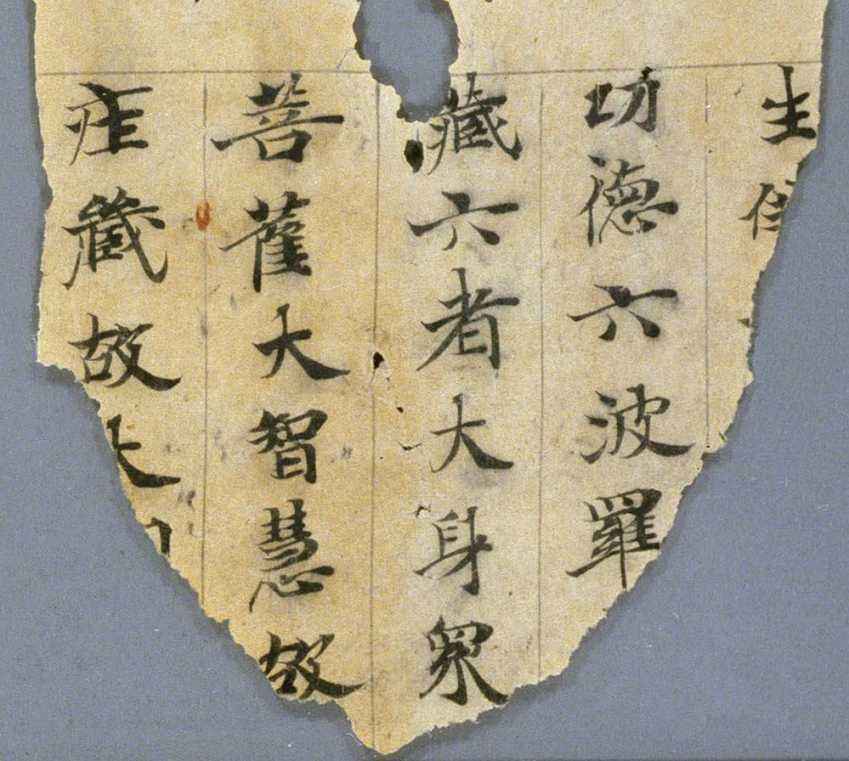 生
功德六波羅
藏六者大身眾
菩薩大智慧故
莊藏故大